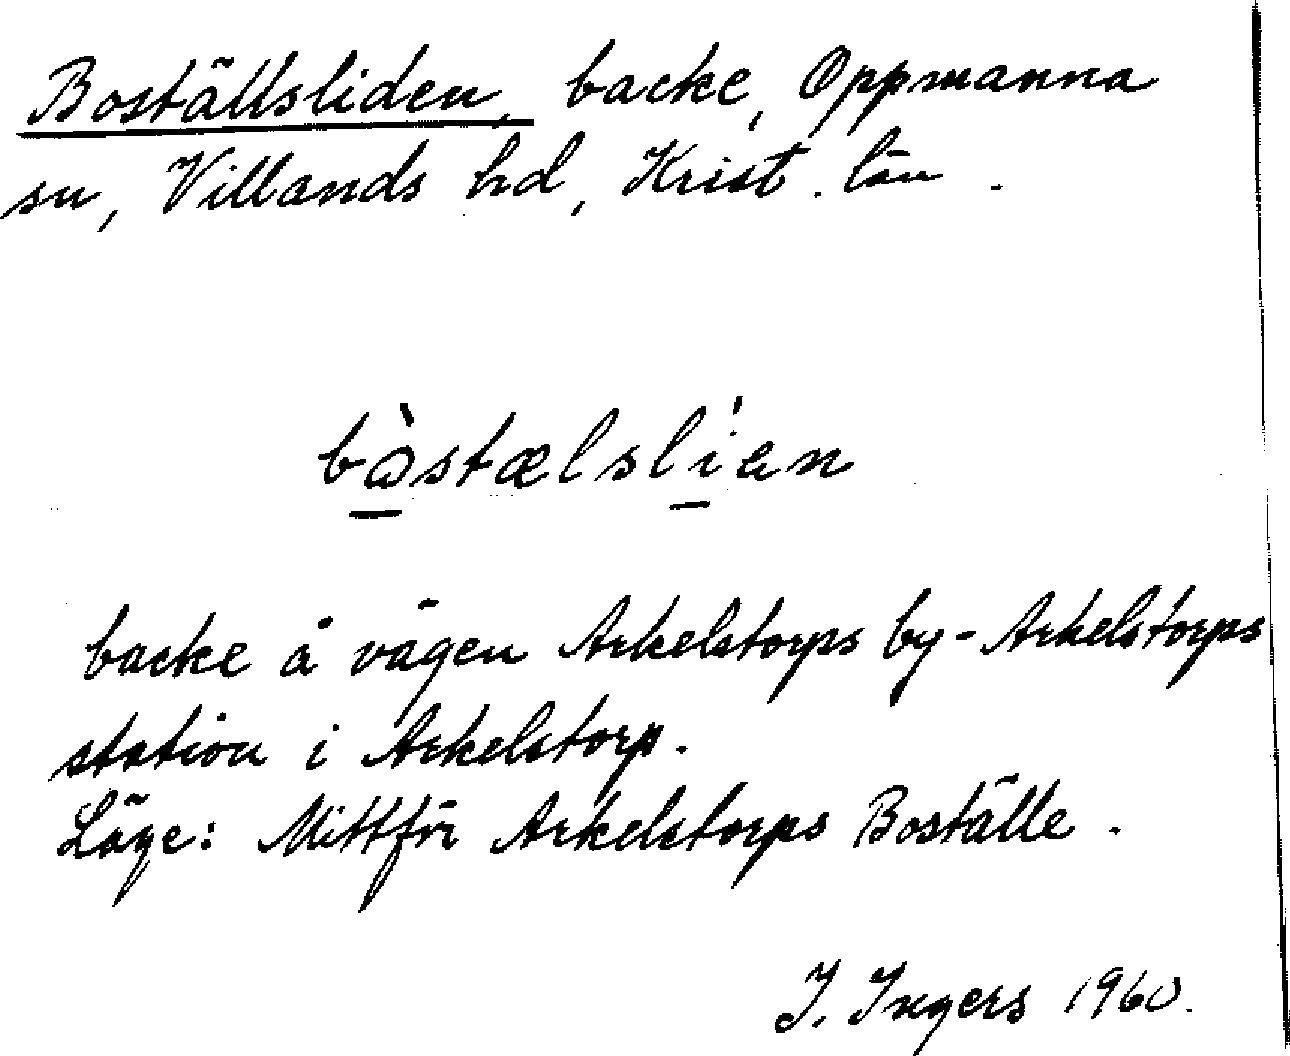 Boställsliden, backe, Oppmanna
sn, Villands hd, Krist. län.
bòstælslíen
backe å vägen Arkelstorps by - Arkelstorps
station i Arkelstorp.
Läge: Mittför Arkelstorps Boställe.
I. Ingers 1960.